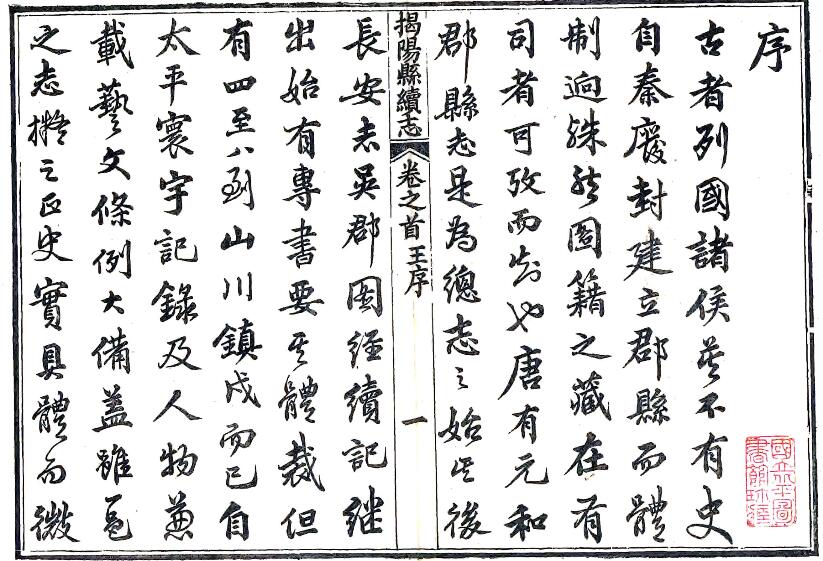 序
古者列國諸侯莫不有史
自秦廢封建立郡縣而體
制逈殊然圖籍之藏在有
司者可攷而知也唐有元和
郡縣志是為總志之始其後
揭陽縣續志 卷之首 王序 一
長安志吳郡圖經續記继
出始有專書要其體裁但
有四至八到山川鎮戍而已自
太平寰宇記錄及人物兼
載藝文條例大備蓋雖邑
之志擬之正史實具體而微